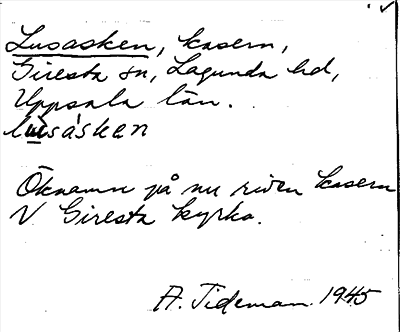 Lusasken, kasern,
Giresta sn, Lagunda hd,
Uppsala län.
lusasken
Öknamn på nu riven kasern
N Giresta kyrka.
A. Tideman 1945